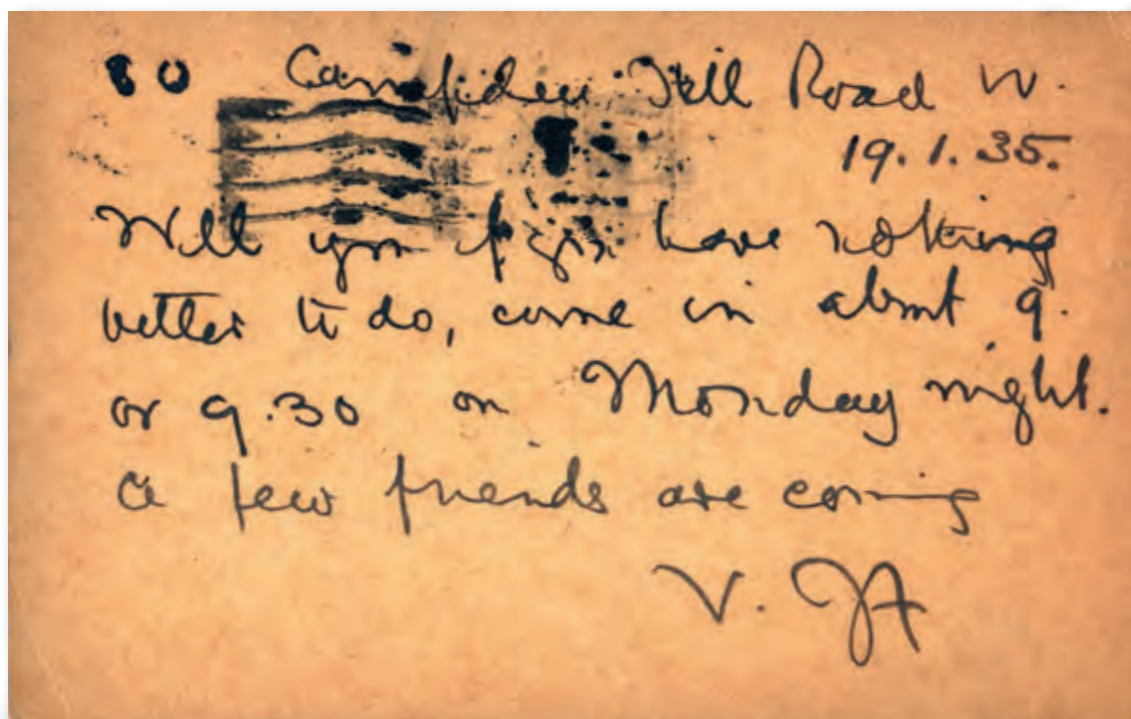 80 Campden Hill Road W.
19.1.35.
Will you if you have nothing
better to do, come in about 9.
or 9.30 on Monday night.
a few friends are coming
V.